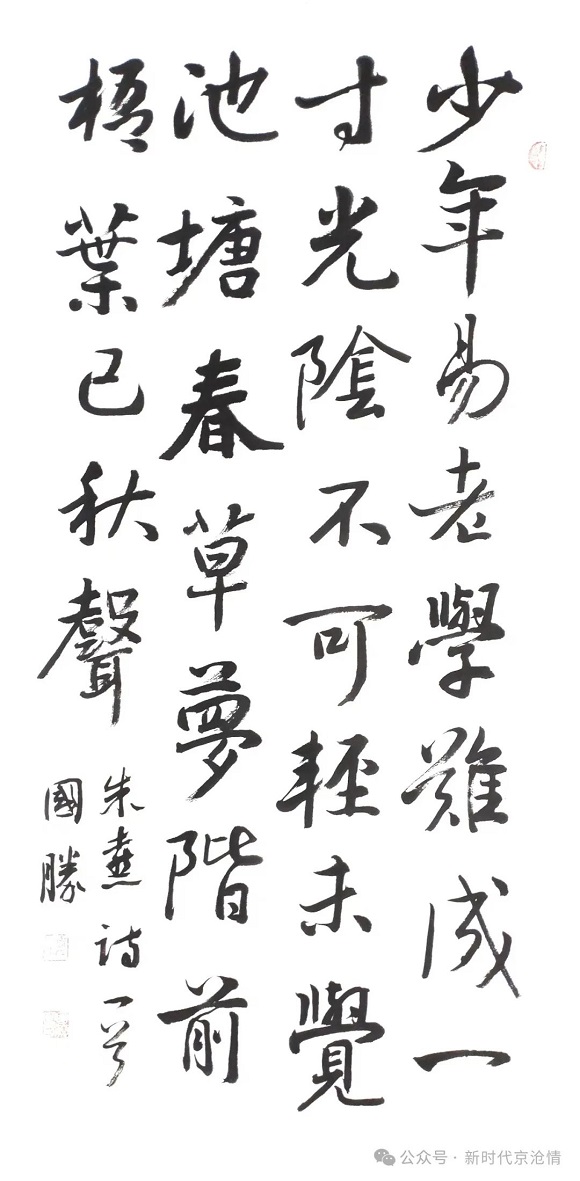 少年易老學難成一
寸光陰不可輕未覺
池塘春草夢階前
梧葉已秋聲
朱熹詩一首
國勝
公众号 · 新时代京沧情